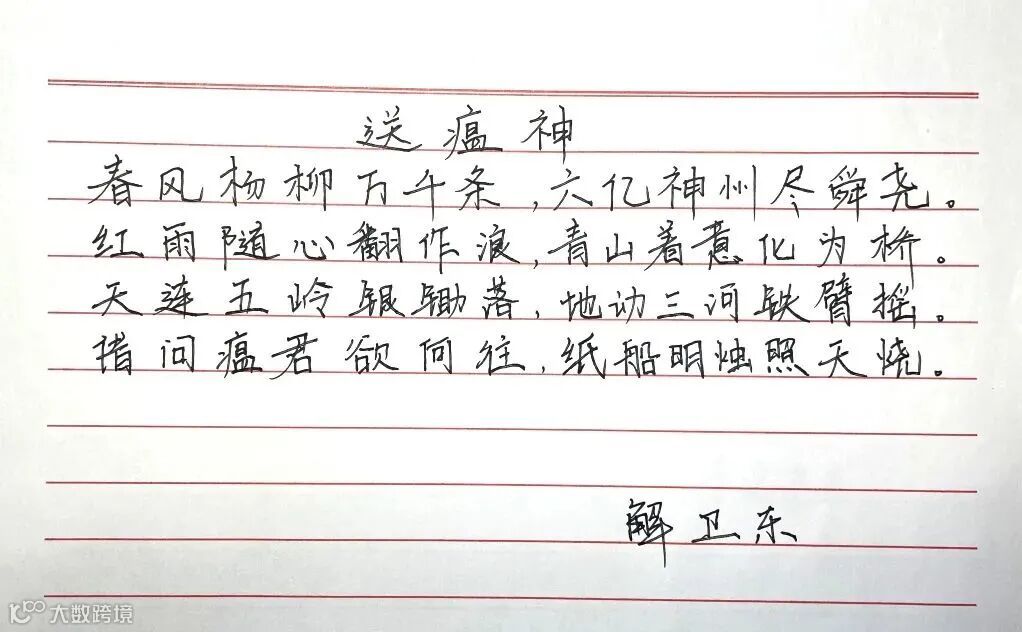 送瘟神
春风杨柳万千条,六亿神州尽舜尧。
红雨随心翻作浪,青山着意化为桥。
天连五岭银锄落,地动三河铁臂摇。
借问瘟君欲何往,纸船明烛照天烧。
解卫东
大数跨境